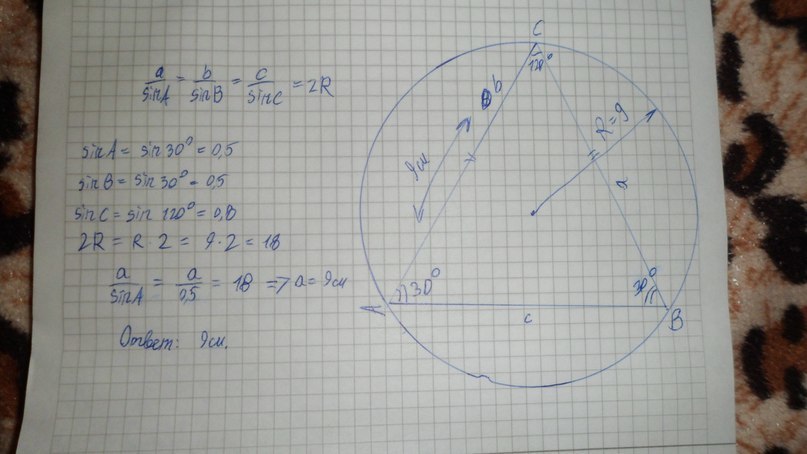 a/sinA = b/sinB = c/sinC = 2R
sinA = sin 30° = 0,5
sinB = sin 30° = 0,5
sinC = sin 120° = 0,8
2R = R · 2 = 9 · 2 = 18
a/sinA = a/0,5 = 18 => a = 9см
Ответ: 9см.
C
120°
b
9см
R = 9
a
A
30°
30°
B
c